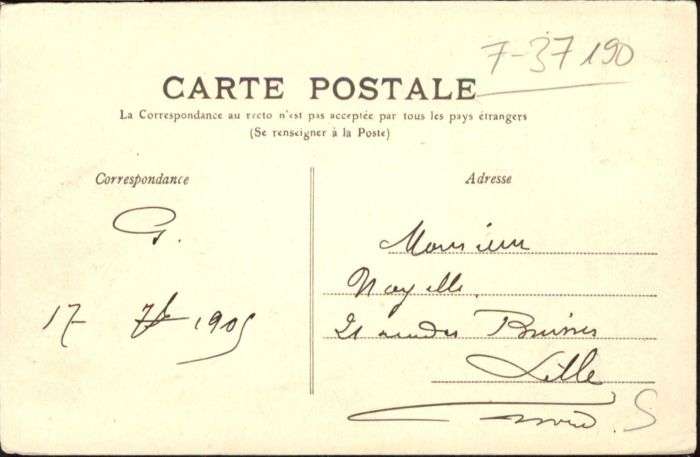 7-37190
CARTE POSTALE
La Correspondance au recto n'est pas acceptée par tous les pays étrangers
(Se renseigner à la Poste)
Correspondance
Adresse
G.
17 7bre 1905
Monsieur
Noyelle
21 rue des
Lille
Nord
S